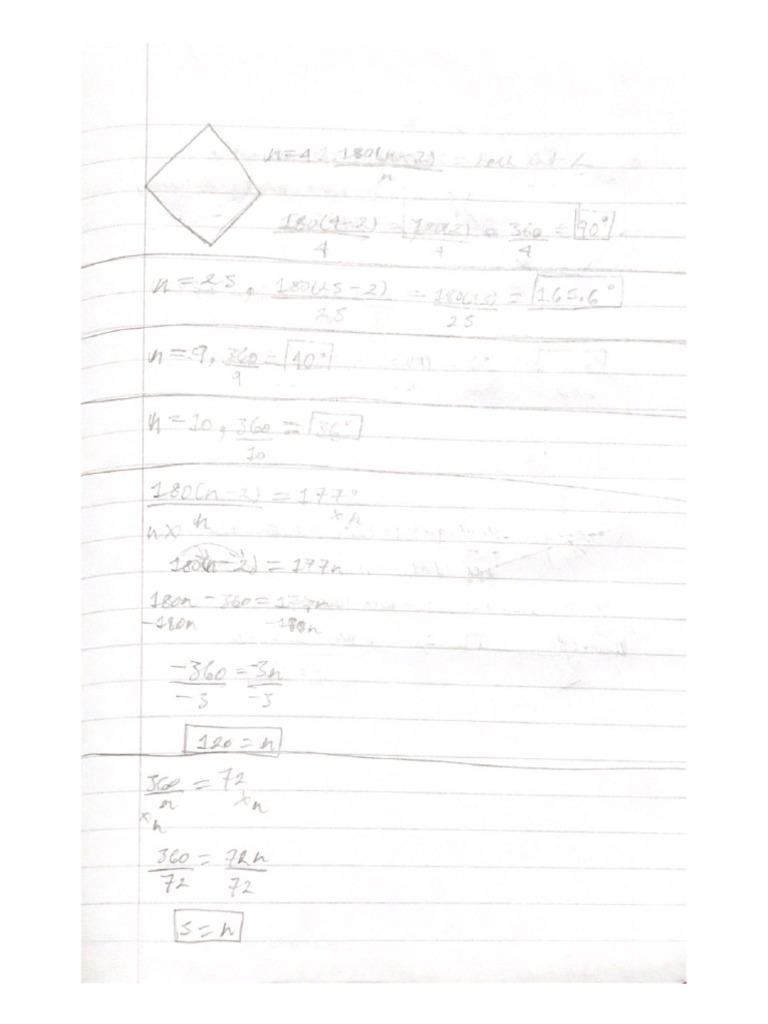 n=4. 180(n-2)/n = each int ∠
180(4-2)/4 = 180(2)/4 = 360/4 = 90°.
n=25, 180(25-2)/25 = 180(23)/25 = 165.6°
n=9, 360/9 = 40°
n=10, 360/10 = 36°
180(n-2)/n = 177°
n× ×n
180(n-2) = 177n
180n - 360 = 177n
-180n -180n
-360/-3 = -3n/-3
120 = n
360/n = 72
×n ×n
360/72 = 72n/72
5 = n